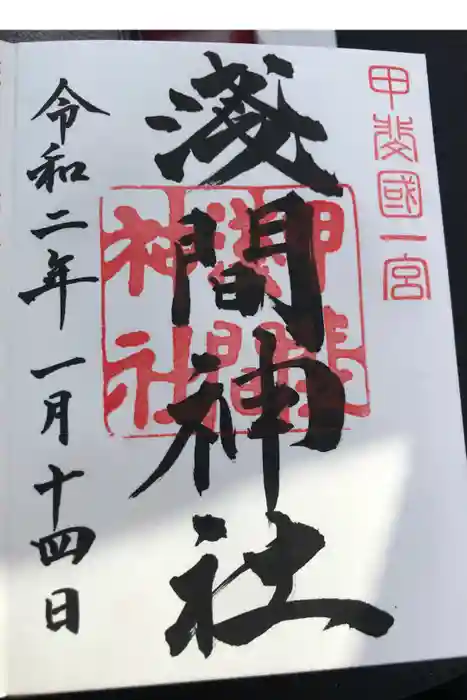 甲斐國一宮
淺間神社
甲斐
淺間
神社
令和二年一月十四日